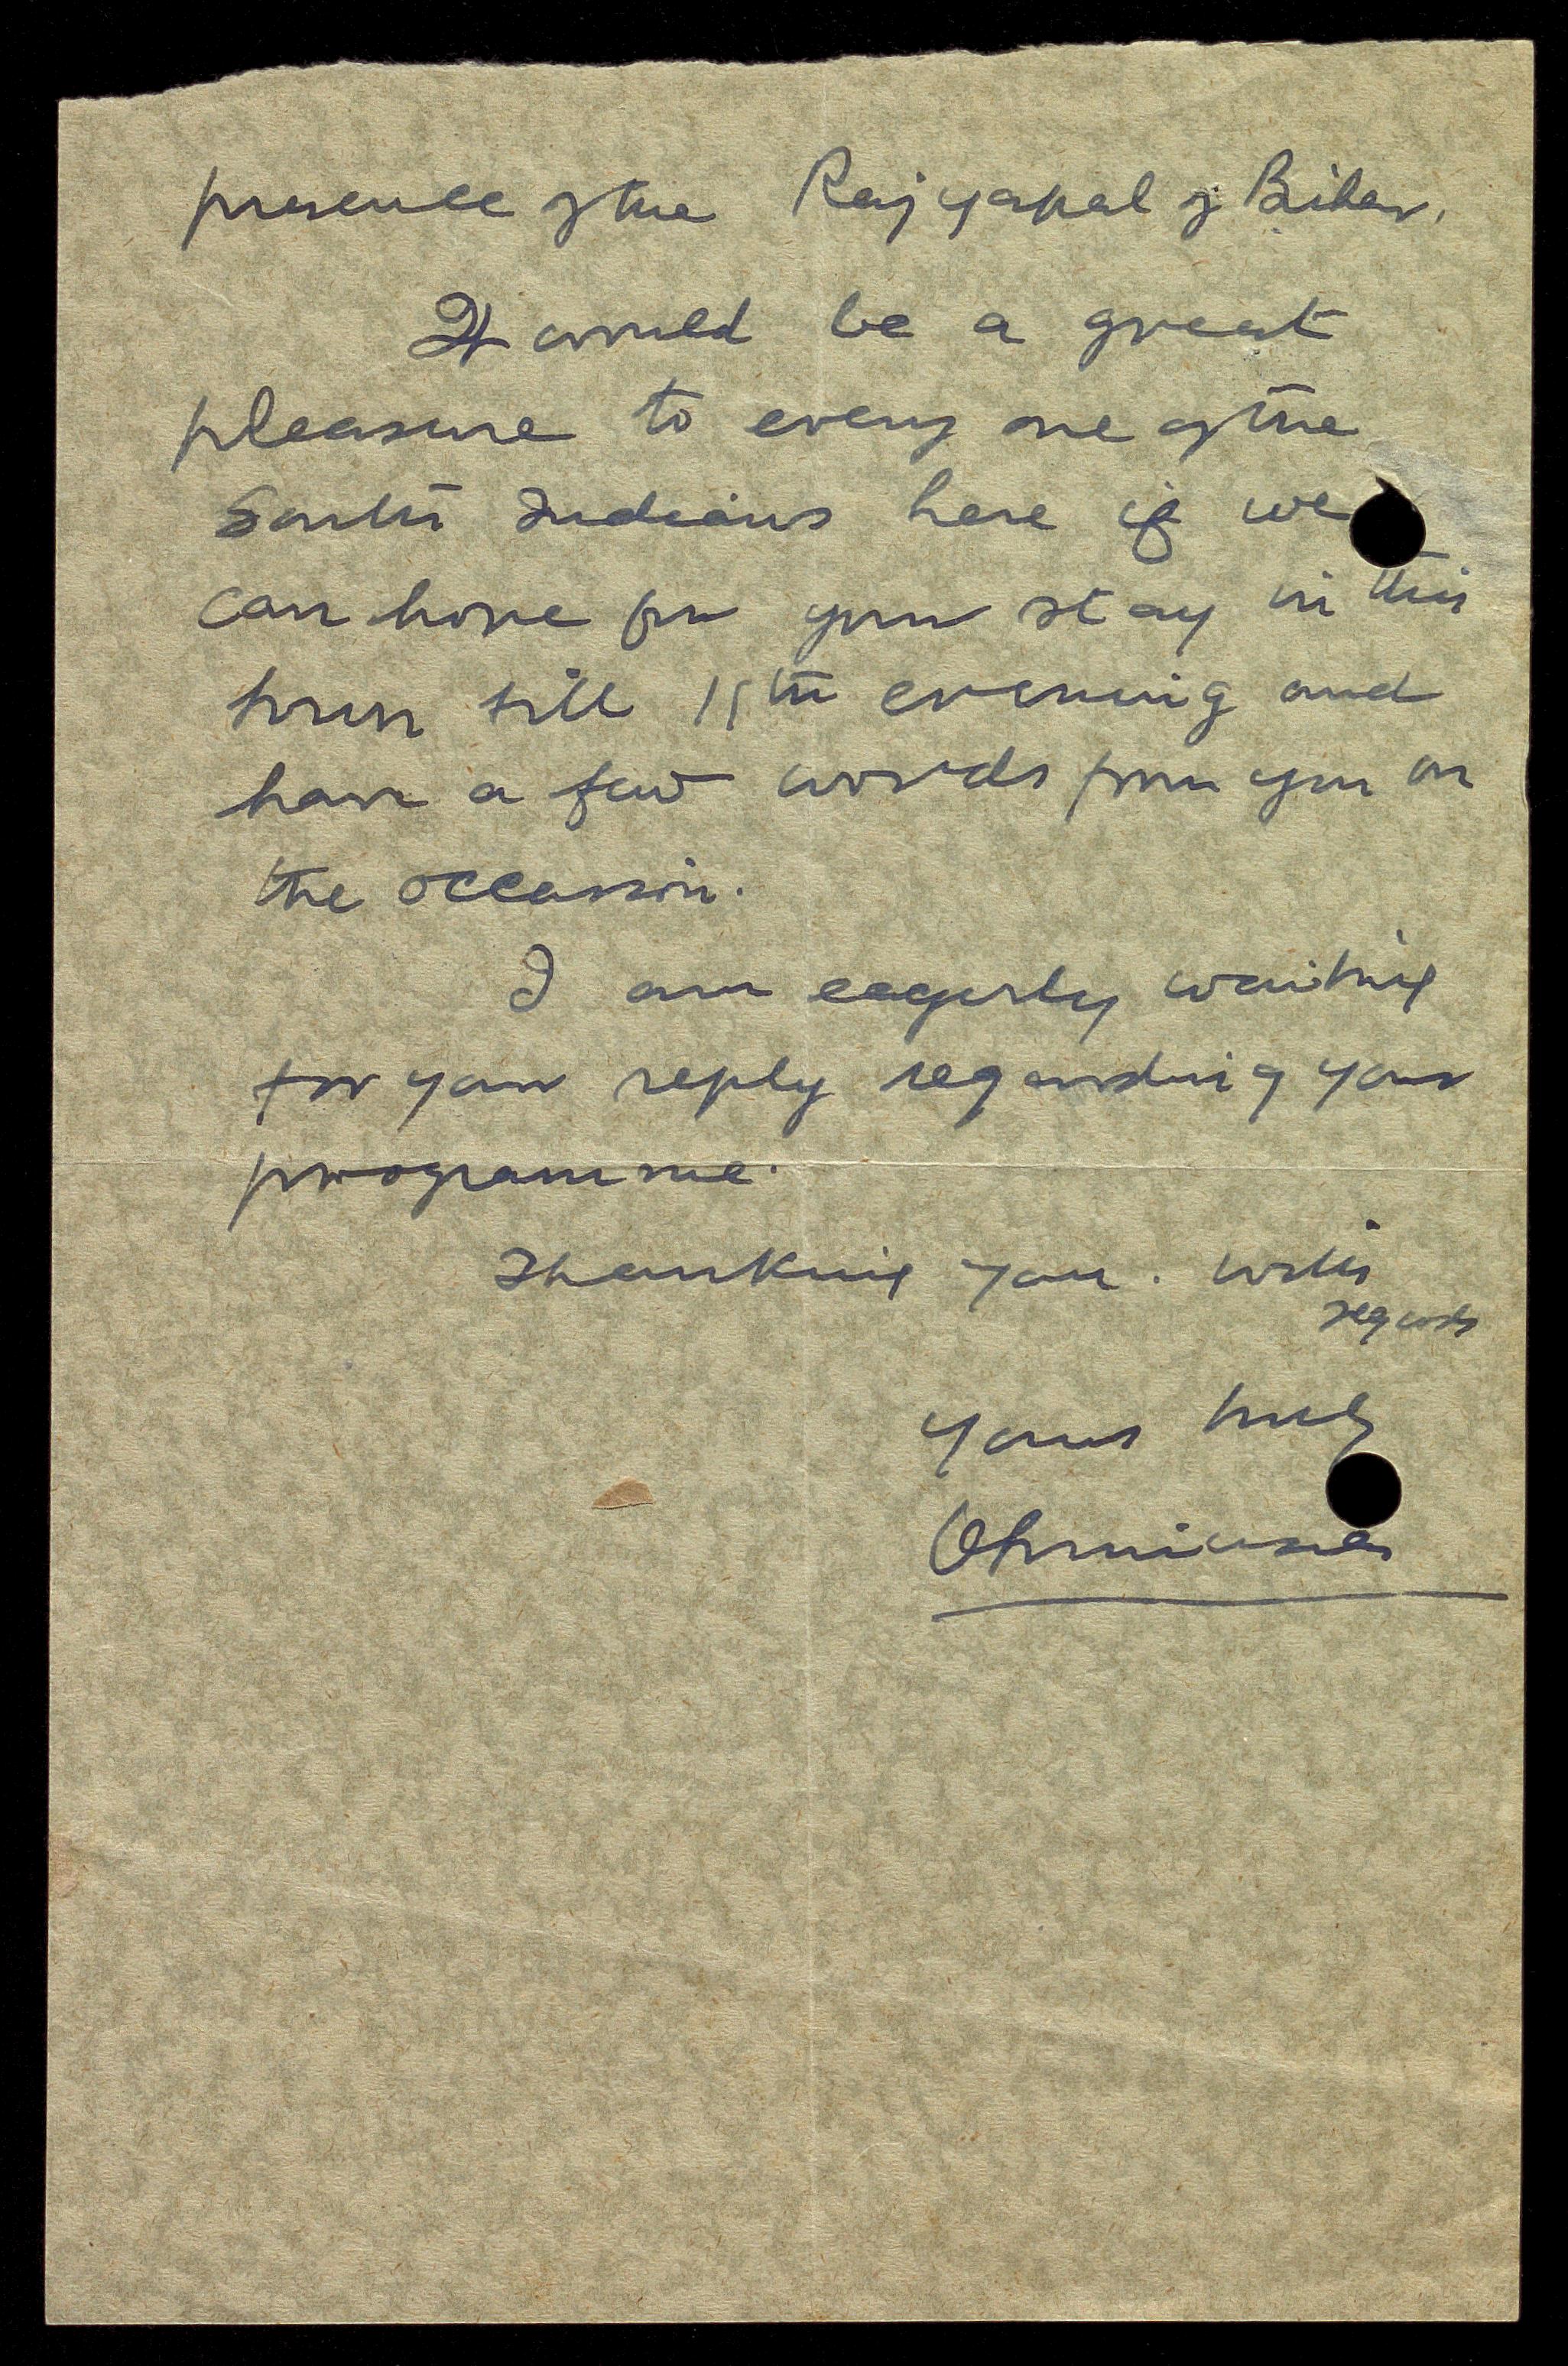 presence of the Rajyapal of Bihar.
It would be a great
pleasure to every one of the
South Indians here if we
can hope for your stay in this
town till 15th evening and
have a few words from you on
the occassion.
I am eagerly waiting
for your reply regarding your
programme.
Thanking you. With
regards
Yours truly